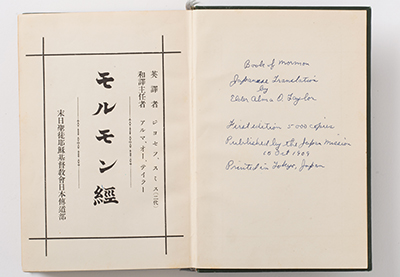 英譯者 ジョセフ、スミス(二代)
和譯主任者 アルマ、オー、テイラー
モルモン經
末日聖徒耶穌基督教會日本傳道部
Book of Mormon
Japanese Translation
by
Elder Alma O. Taylor
First edition 5000 copies
Published by the Japan Mission
10 Oct 1909
Printed in Tokyo, Japan